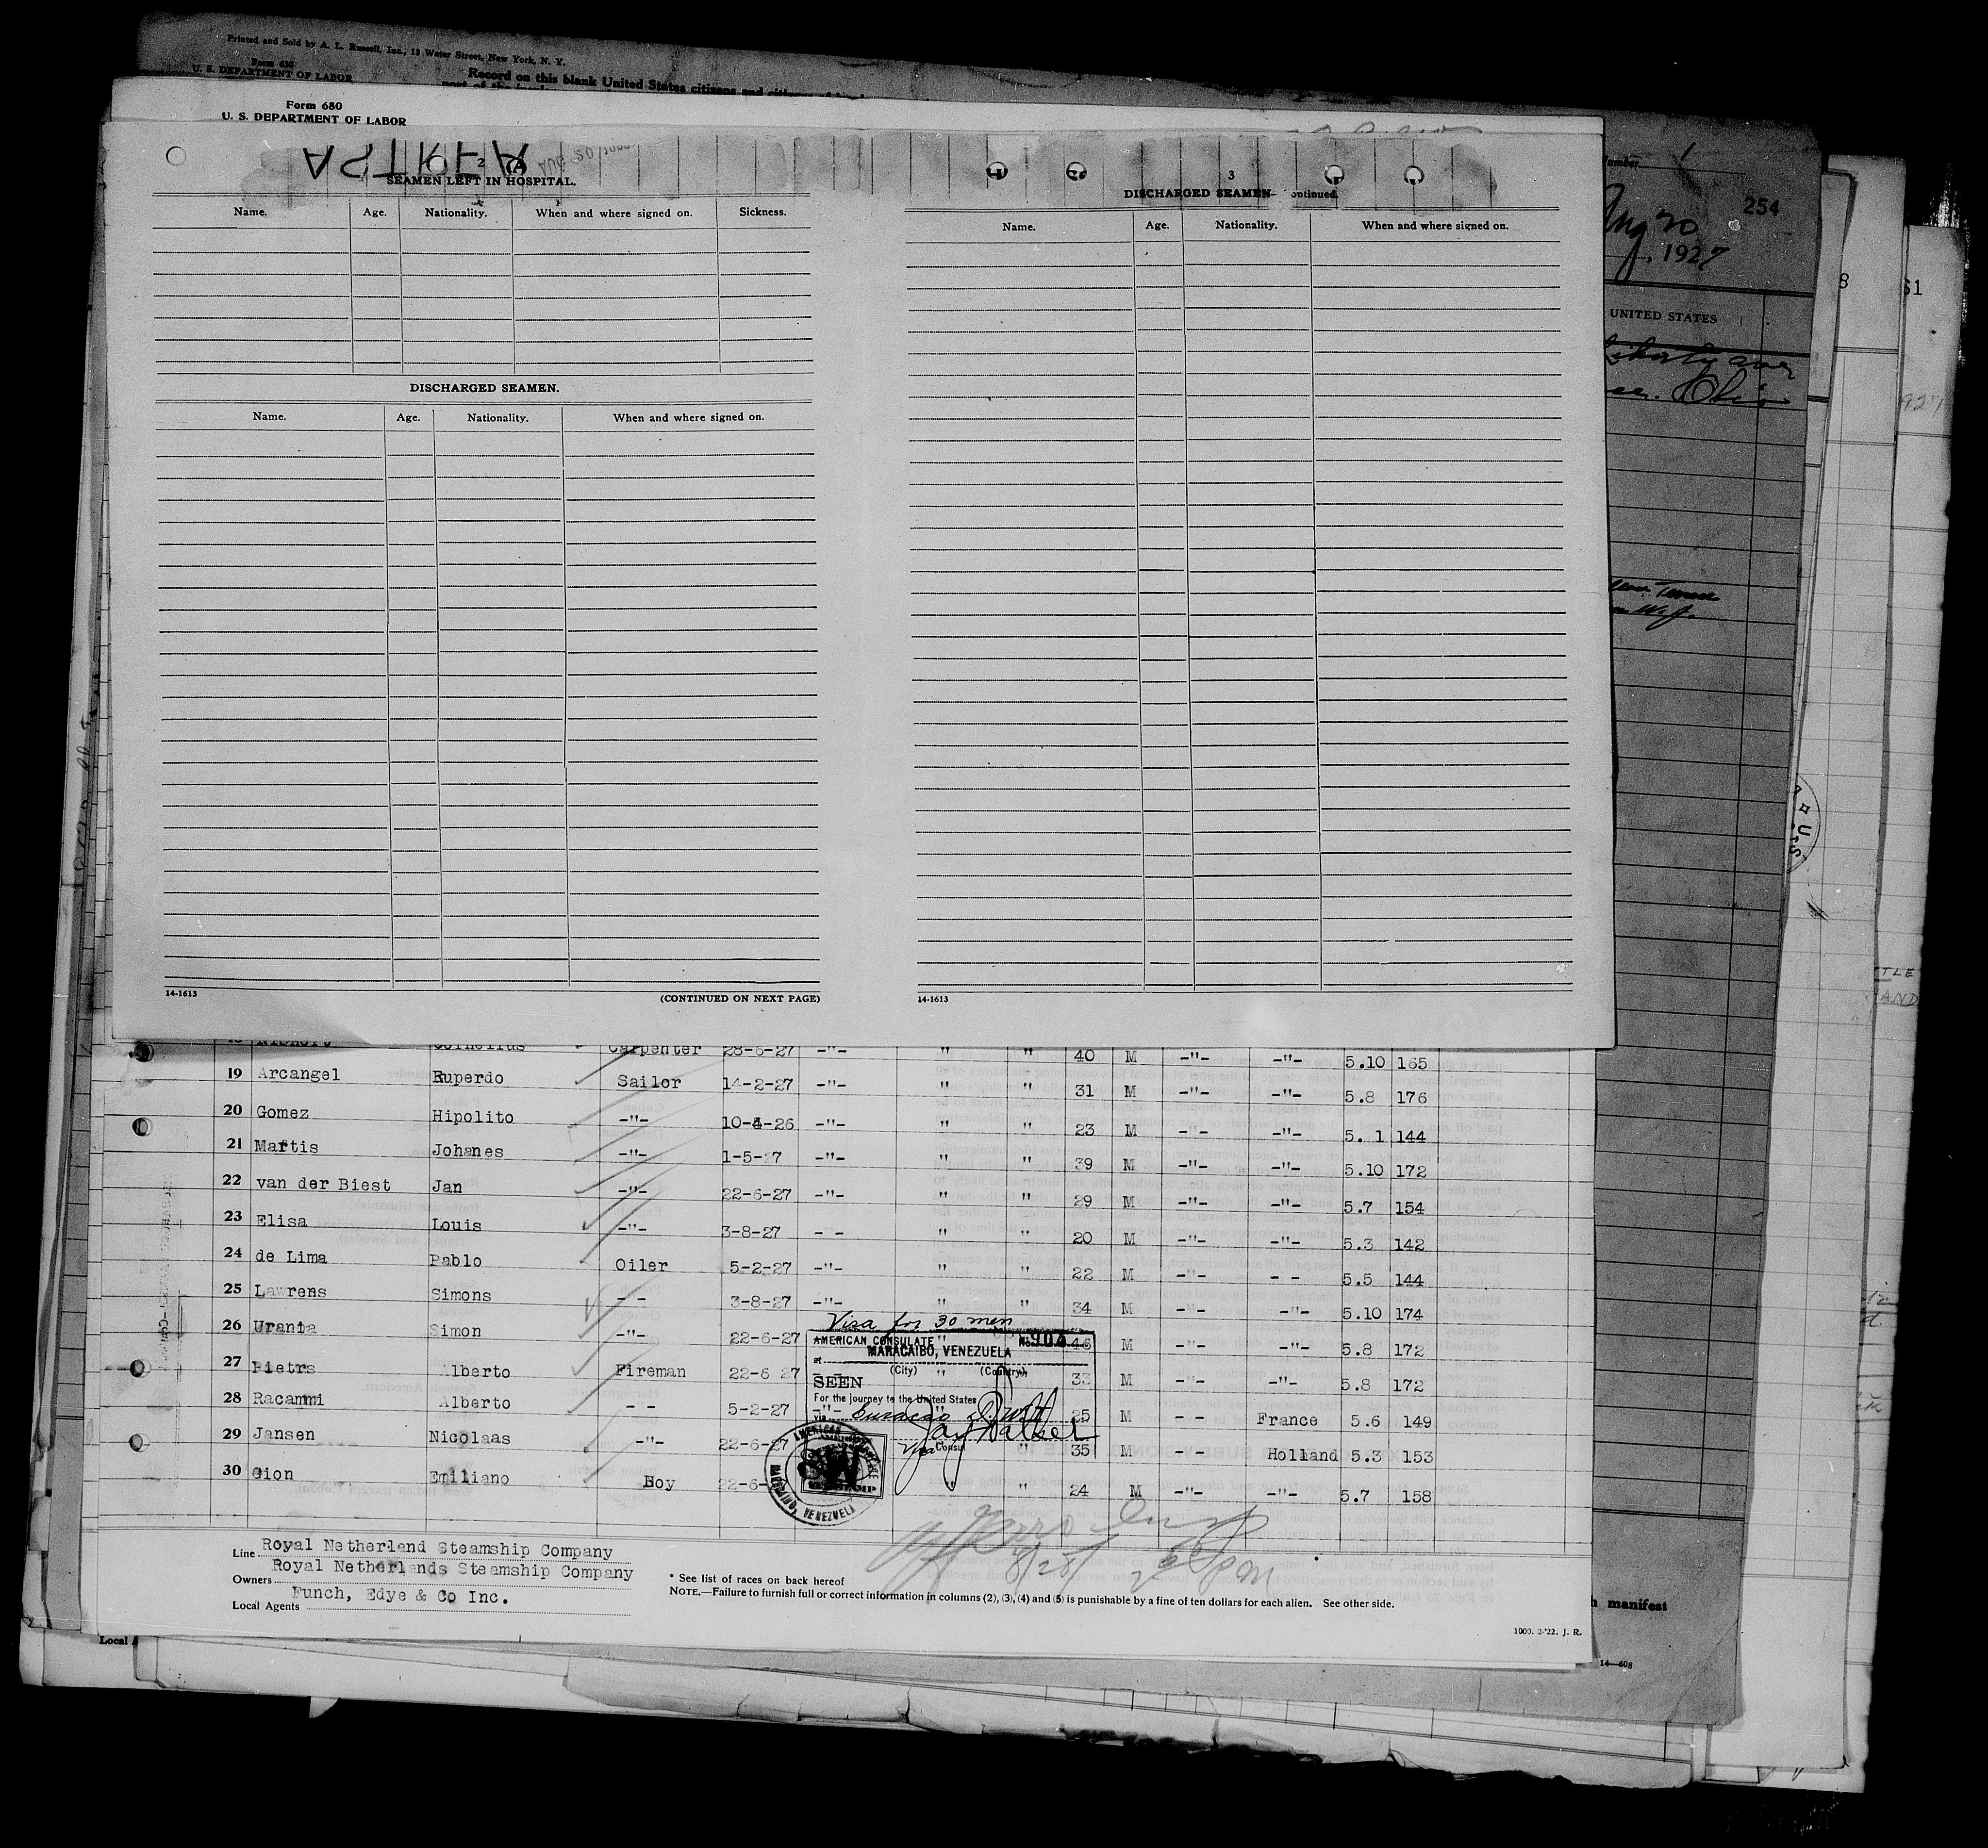 Printed and Sold by A. L. Russell, Inc., 13 Water Street, New York, N. Y.
Form 630
U. S. DEPARTMENT OF LABOR
Record on this blank United States citizens and citizens of
Form 680
U. S. DEPARTMENT OF LABOR
2
AUG 20
SEAMEN LEFT IN HOSPITAL.
Name. Age. Nationality. When and where signed on. Sickness.
DISCHARGED SEAMEN.
Name. Age. Nationality. When and where signed on.
14-1613 (CONTINUED ON NEXT PAGE)
3
DISCHARGED SEAMEN—Continued.
Name. Age. Nationality. When and where signed on.
14-1613
Number 1
254
Aug 20
, 1927
UNITED STATES
Liberty ave
Ohio
Cornelius Carpenter 28-6-27 -"- " " 40 M -"- -"- 5.10 165
19 Arcangel Ruperdo Sailor 14-2-27 -"- " " 31 M -"- -"- 5.8 176
20 Gomez Hipolito -"- 10-4-26 -"- " " 23 M - - -"- 5. 1 144
21 Martis Johanes -"- 1-5-27 -"- " " 39 M -"- -"- 5.10 172
22 van der Biest Jan -"- 22-6-27 -"- " " 29 M -"- -"- 5.7 154
23 Elisa Louis -"- 3-8-27 - - " " 20 M -"- -"- 5.3 142
24 de Lima Pablo Oiler 5-2-27 -"- " " 22 M -"- - - 5.5 144
25 Lawrens Simons - - 3-8-27 -"- " " 34 M -"- -"- 5.10 174
26 Urania Simon -"- 22-6-27 " 46 M -"- -"- 5.8 172
27 Pietrs Alberto Fireman 22-6 27 33 M -"- -"- 5.8 172
28 Racammi Alberto - - 5-2-27 -"- " 25 M - - France 5.6 149
29 Jansen Nicolaas -"- 22-6-27 35 M -"- Holland 5.3 153
30 Gion Emiliano Boy 22-6- " " 24 M -"- -"- 5.7 158
Visa for 30 men
AMERICAN CONSULATE No. 904
at MARACAIBO, VENEZUELA
(City) (Country)
SEEN
For the journey to the United States
via Curacao
Jay Walker
Vice Consul
MARACAIBO, VENEZUELA
8/28/
Line Royal Netherland Steamship Company
Owners Royal Netherlands Steamship Company
Local Agents Funch, Edye & Co Inc.
* See list of races on back hereof
NOTE.—Failure to furnish full or correct information in columns (2), (3), (4) and (5) is punishable by a fine of ten dollars for each alien. See other side.
1000. 2-'22. J. R.
manifest
14—608
Local